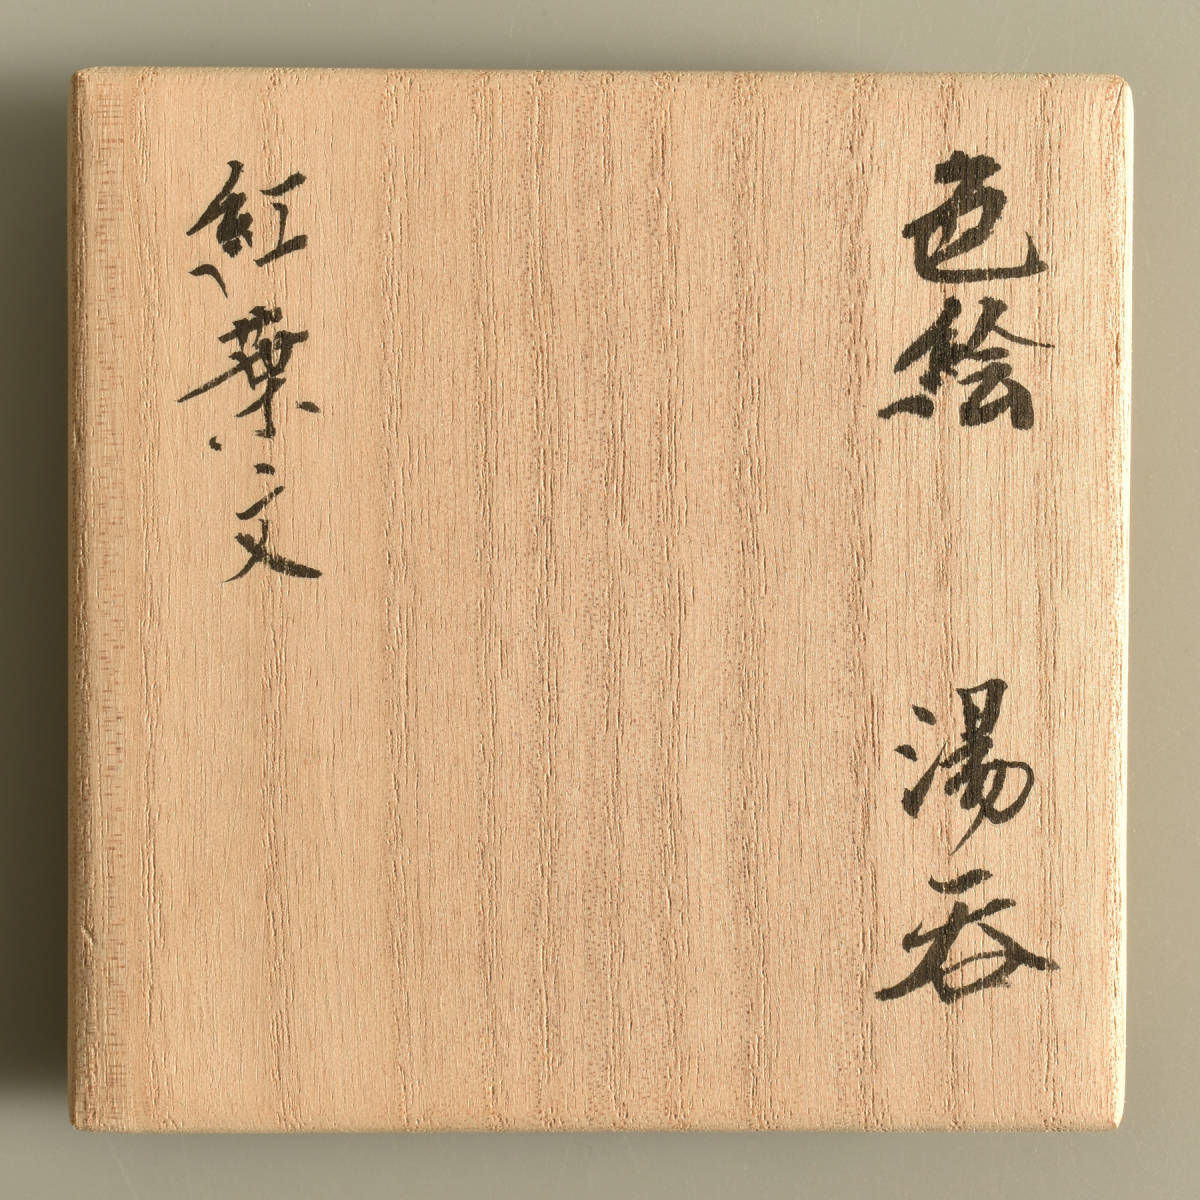 色絵 湯呑
紅葉文